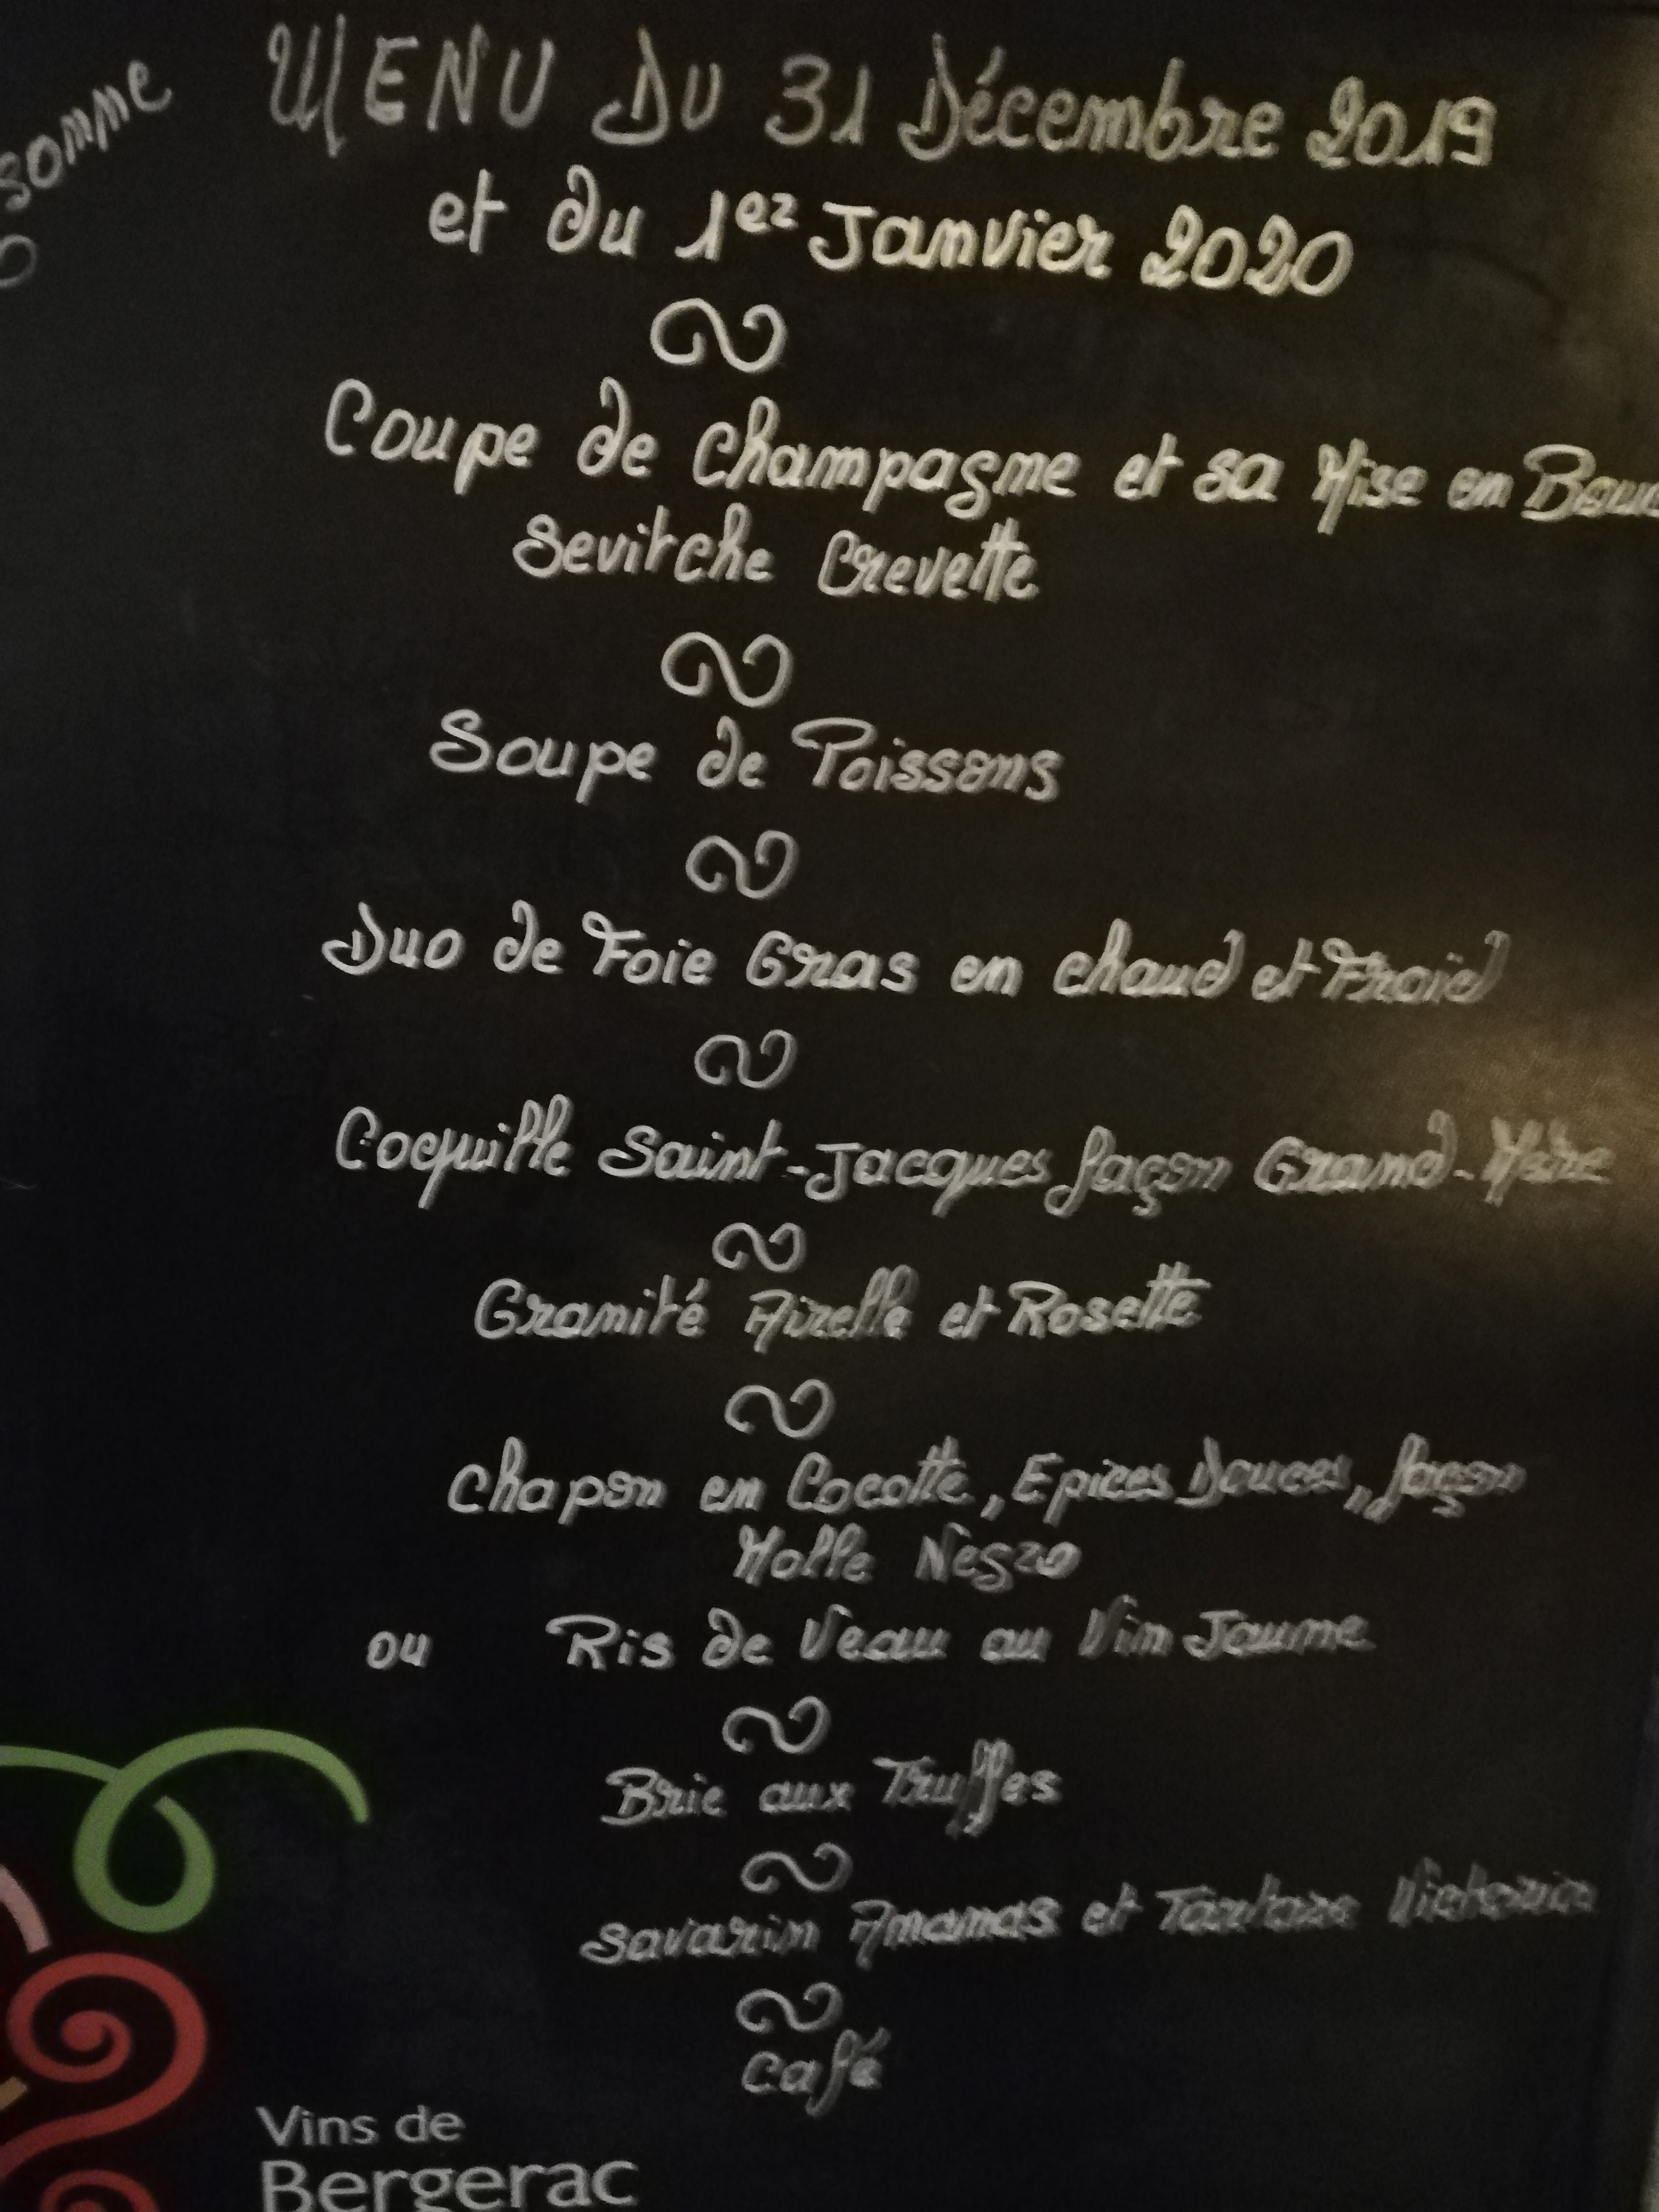 somme
MENU DU 31 Décembre 2019
et du 1er Janvier 2020
Coupe de Champagne et sa Mise en
Sevitche Crevette
Soupe de Poissons
Duo de Foie Gras en chaud et Froid
Coquille Saint-Jacques façon Grand-Mère
Granité Airelle et Rosette
Chapon en Cocotte, Epices Douces, façon
Molle Negro
ou Ris de Veau au Vin Jaune
Brie aux Truffes
Savarin Ananas et Tartare Victoria
Café
Vins de
Bergerac